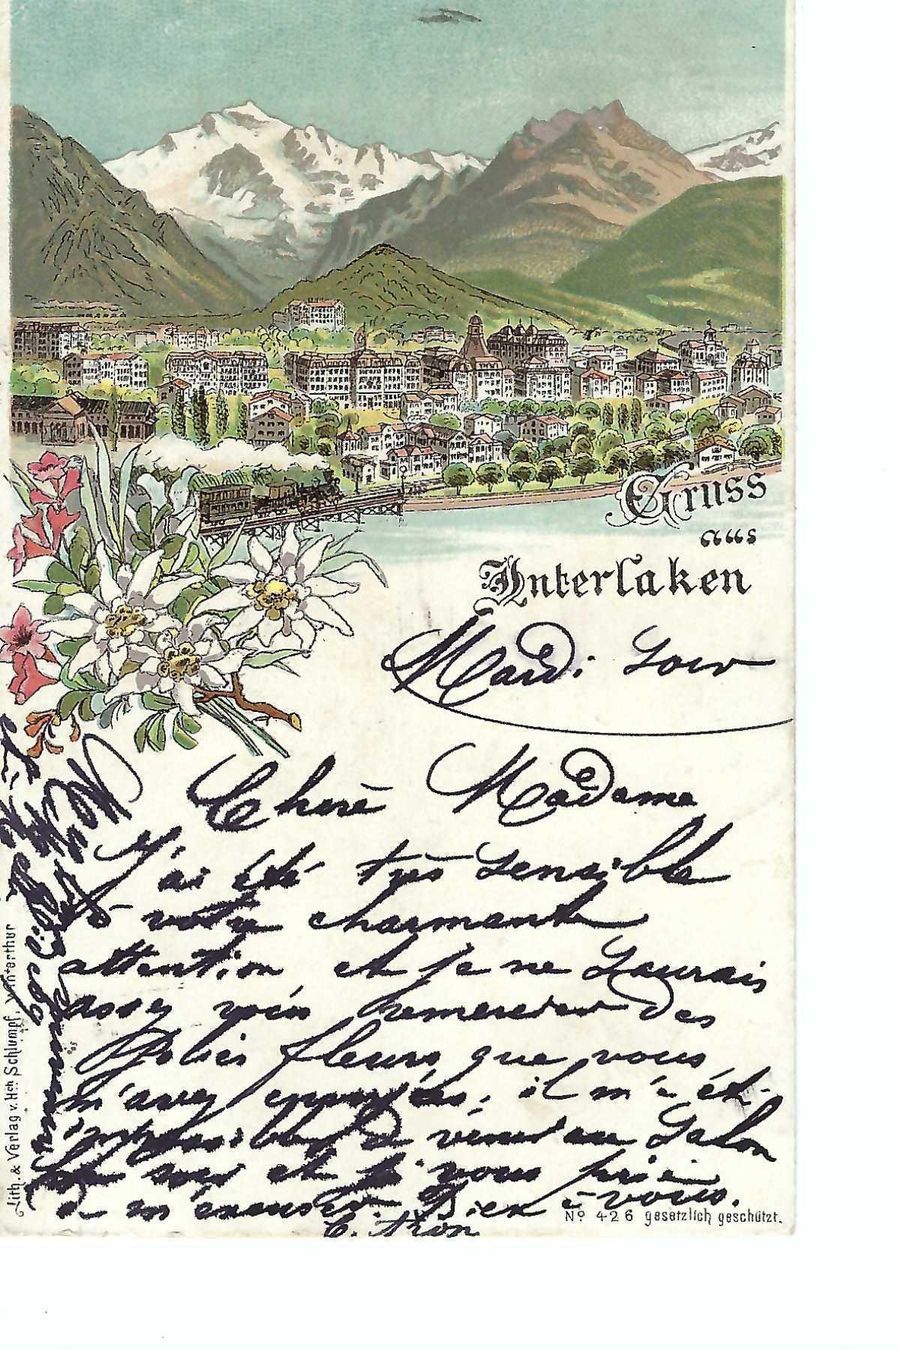 Gruss
aus
Interlaken
Mardi soir
Chère Madame
J'ai été très sensible
à votre charmante
attention et je ne saurais
assez vous remercier des
jolies fleurs, que vous
m'avez envoyées, il m'a été
impossible de venir au Salon
ce soir et je vous prie
de m'excuser. Bien à vous.
C.
Lith. & Verlag v. Hch Schlumpf, Winterthur
No 426 gesetzlich geschützt.